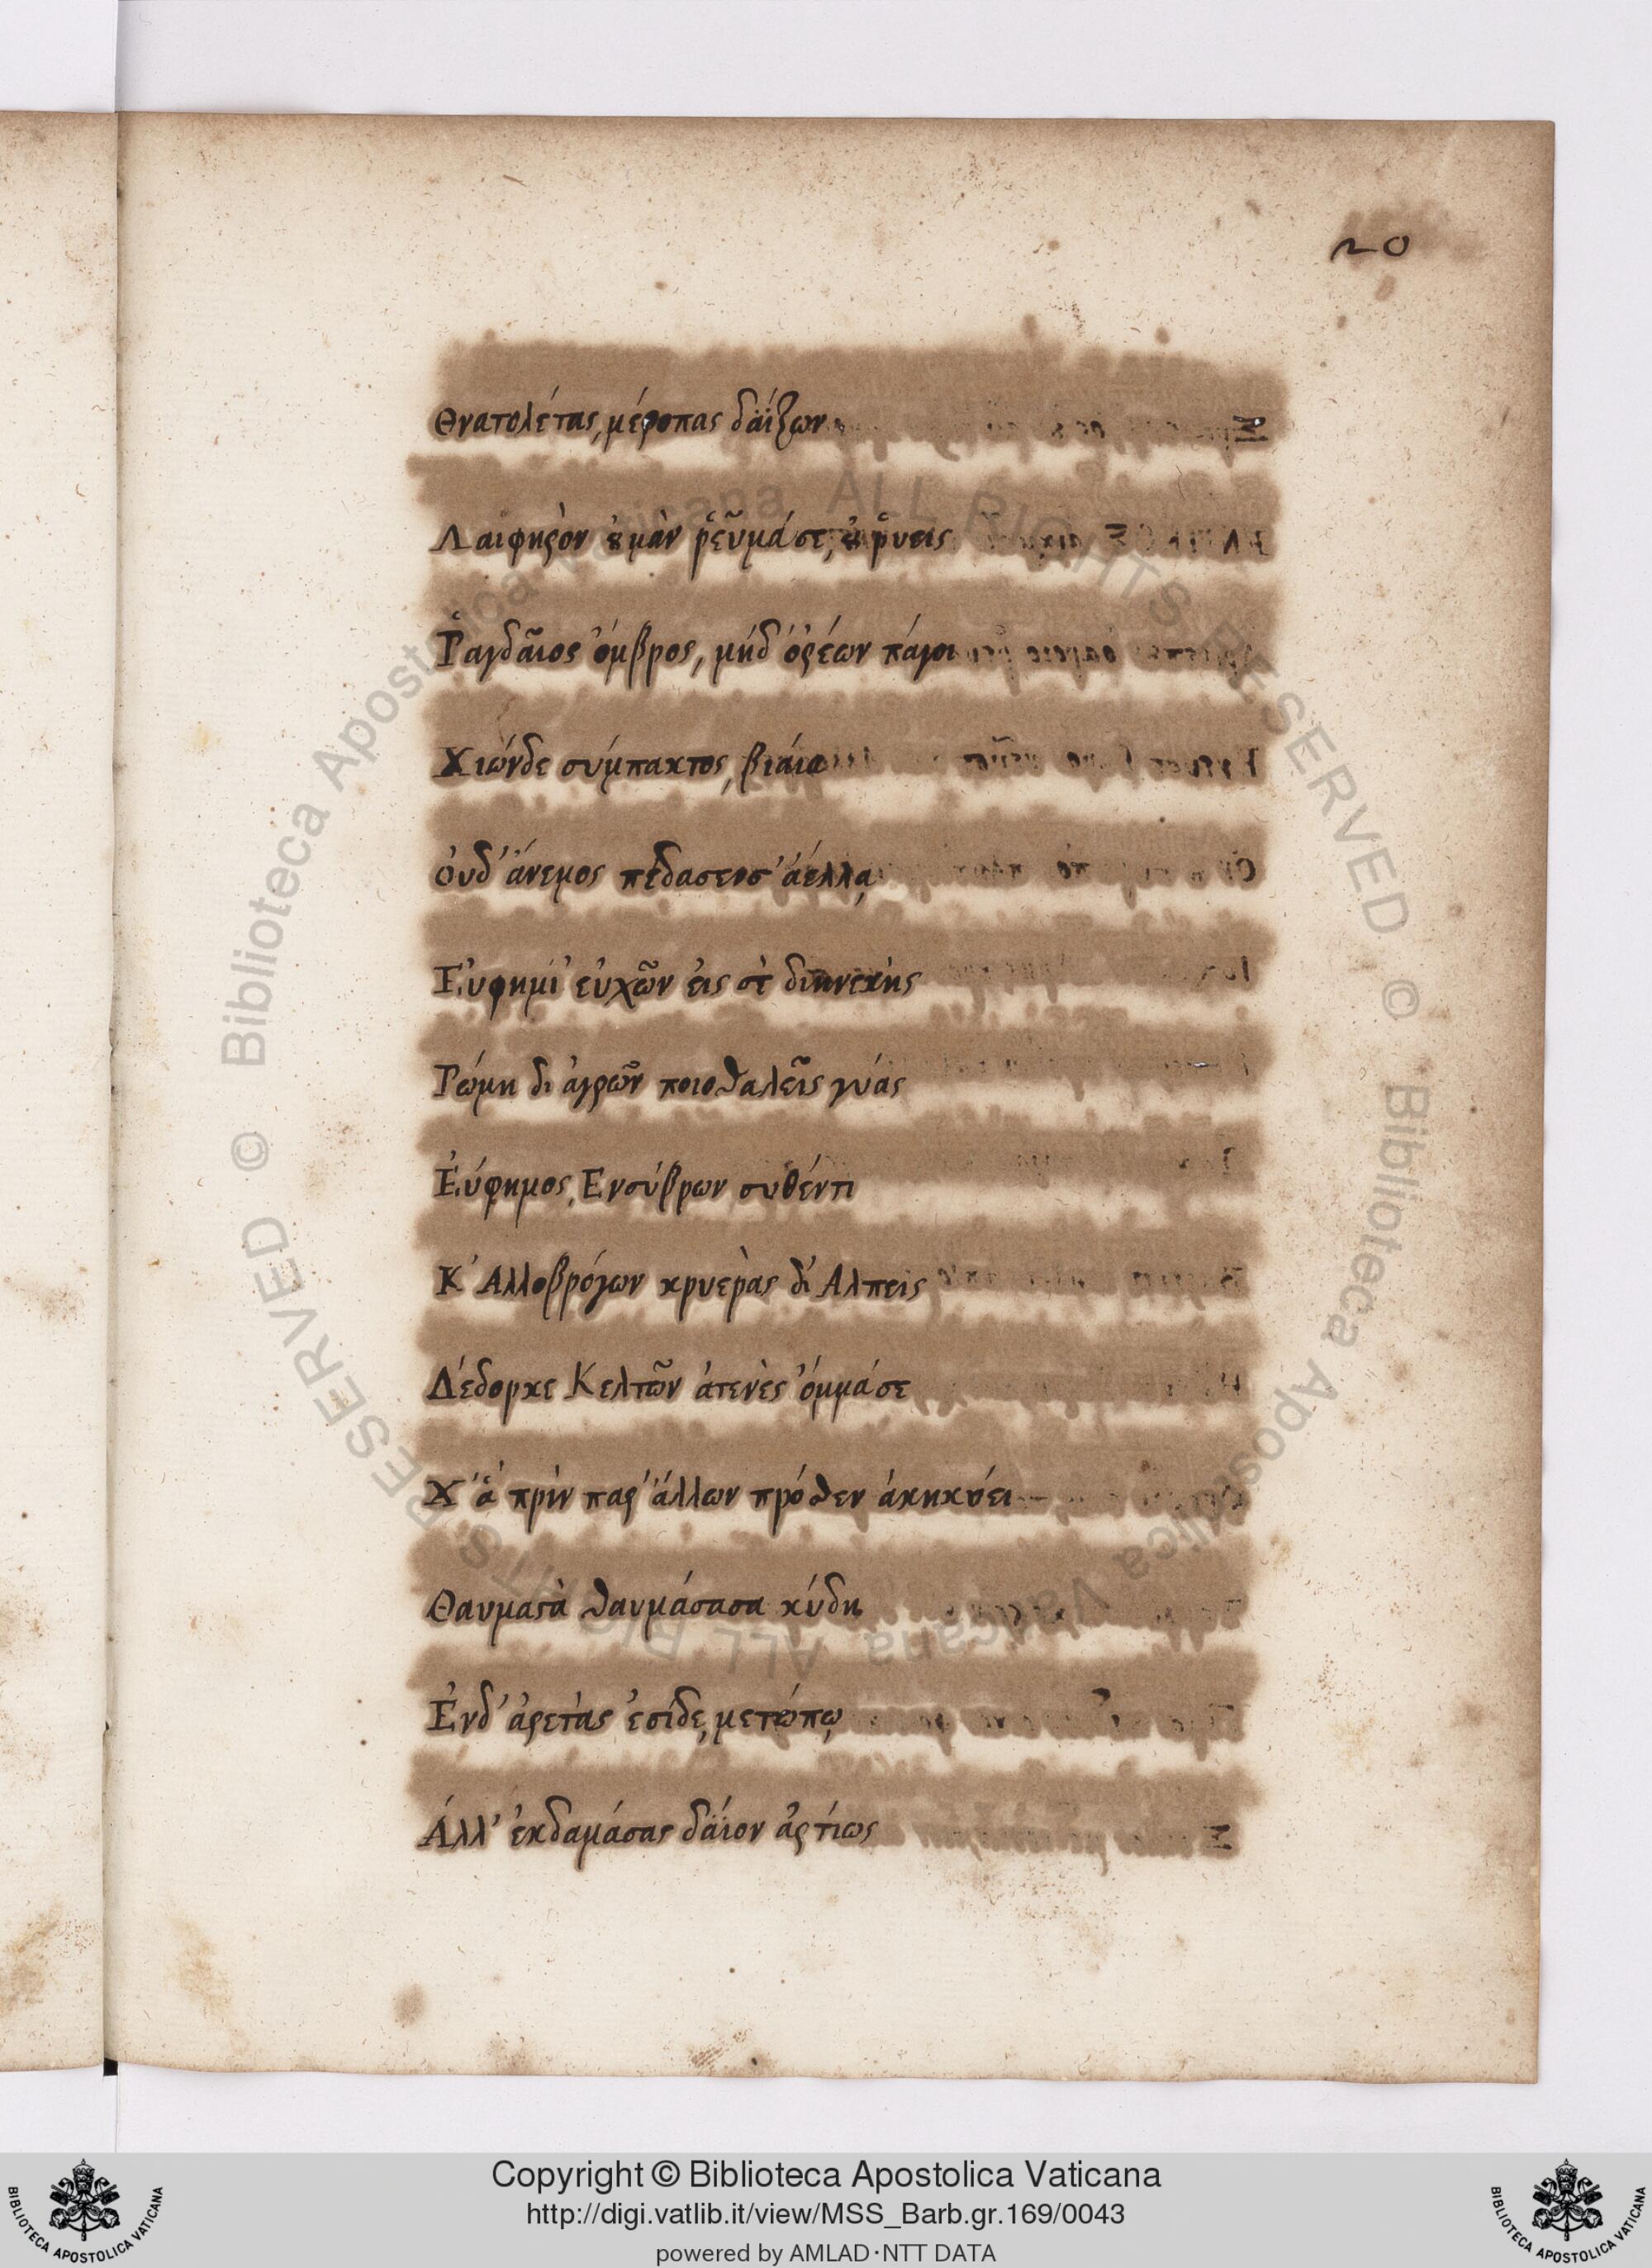 20
Θνατολέτας, μέροπας δαΐζων
Λαιφηρὸν ȣ μὰν ῥεῦμά σε, ȣ ῥύεις
Ῥαγδᾶιος ὄμβρος, μήδ' ὀρέων πάγοι
Χιώνδε σύμπακτος, βιάια
ὀυδ' ἄνεμος πέδασενσ' ἄελλα,
Εὐφημί' εὐχῶν ἐις σὲ διηνεκὴς
Ρώμη δι ἀγρῶν ποιοθαλεῖς γυάς
Ἐύφημος, Ενσύβρων συθέντι
Κ' Αλλοβρόγων κρυερὰς δι' Αλπεις
Δέδορκε Κελτῶν ἀτενὲς ὄμμά σε
Χ' ἃ πρὶν παρ' ἄλλων πρόθεν ἀκηκόει
Θαυμαϛὰ θαυμάσασα κύδη
Ἐνδ' ἀρετὰς ἐσίδε, μετώπῳ
Ἀλλ' ἐκδαμάσας δάϊον ἀρτίως
Copyright © Biblioteca Apostolica Vaticana
http://digi.vatlib.it/view/MSS_Barb.gr.169/0043
powered by AMLAD·NTT DATA